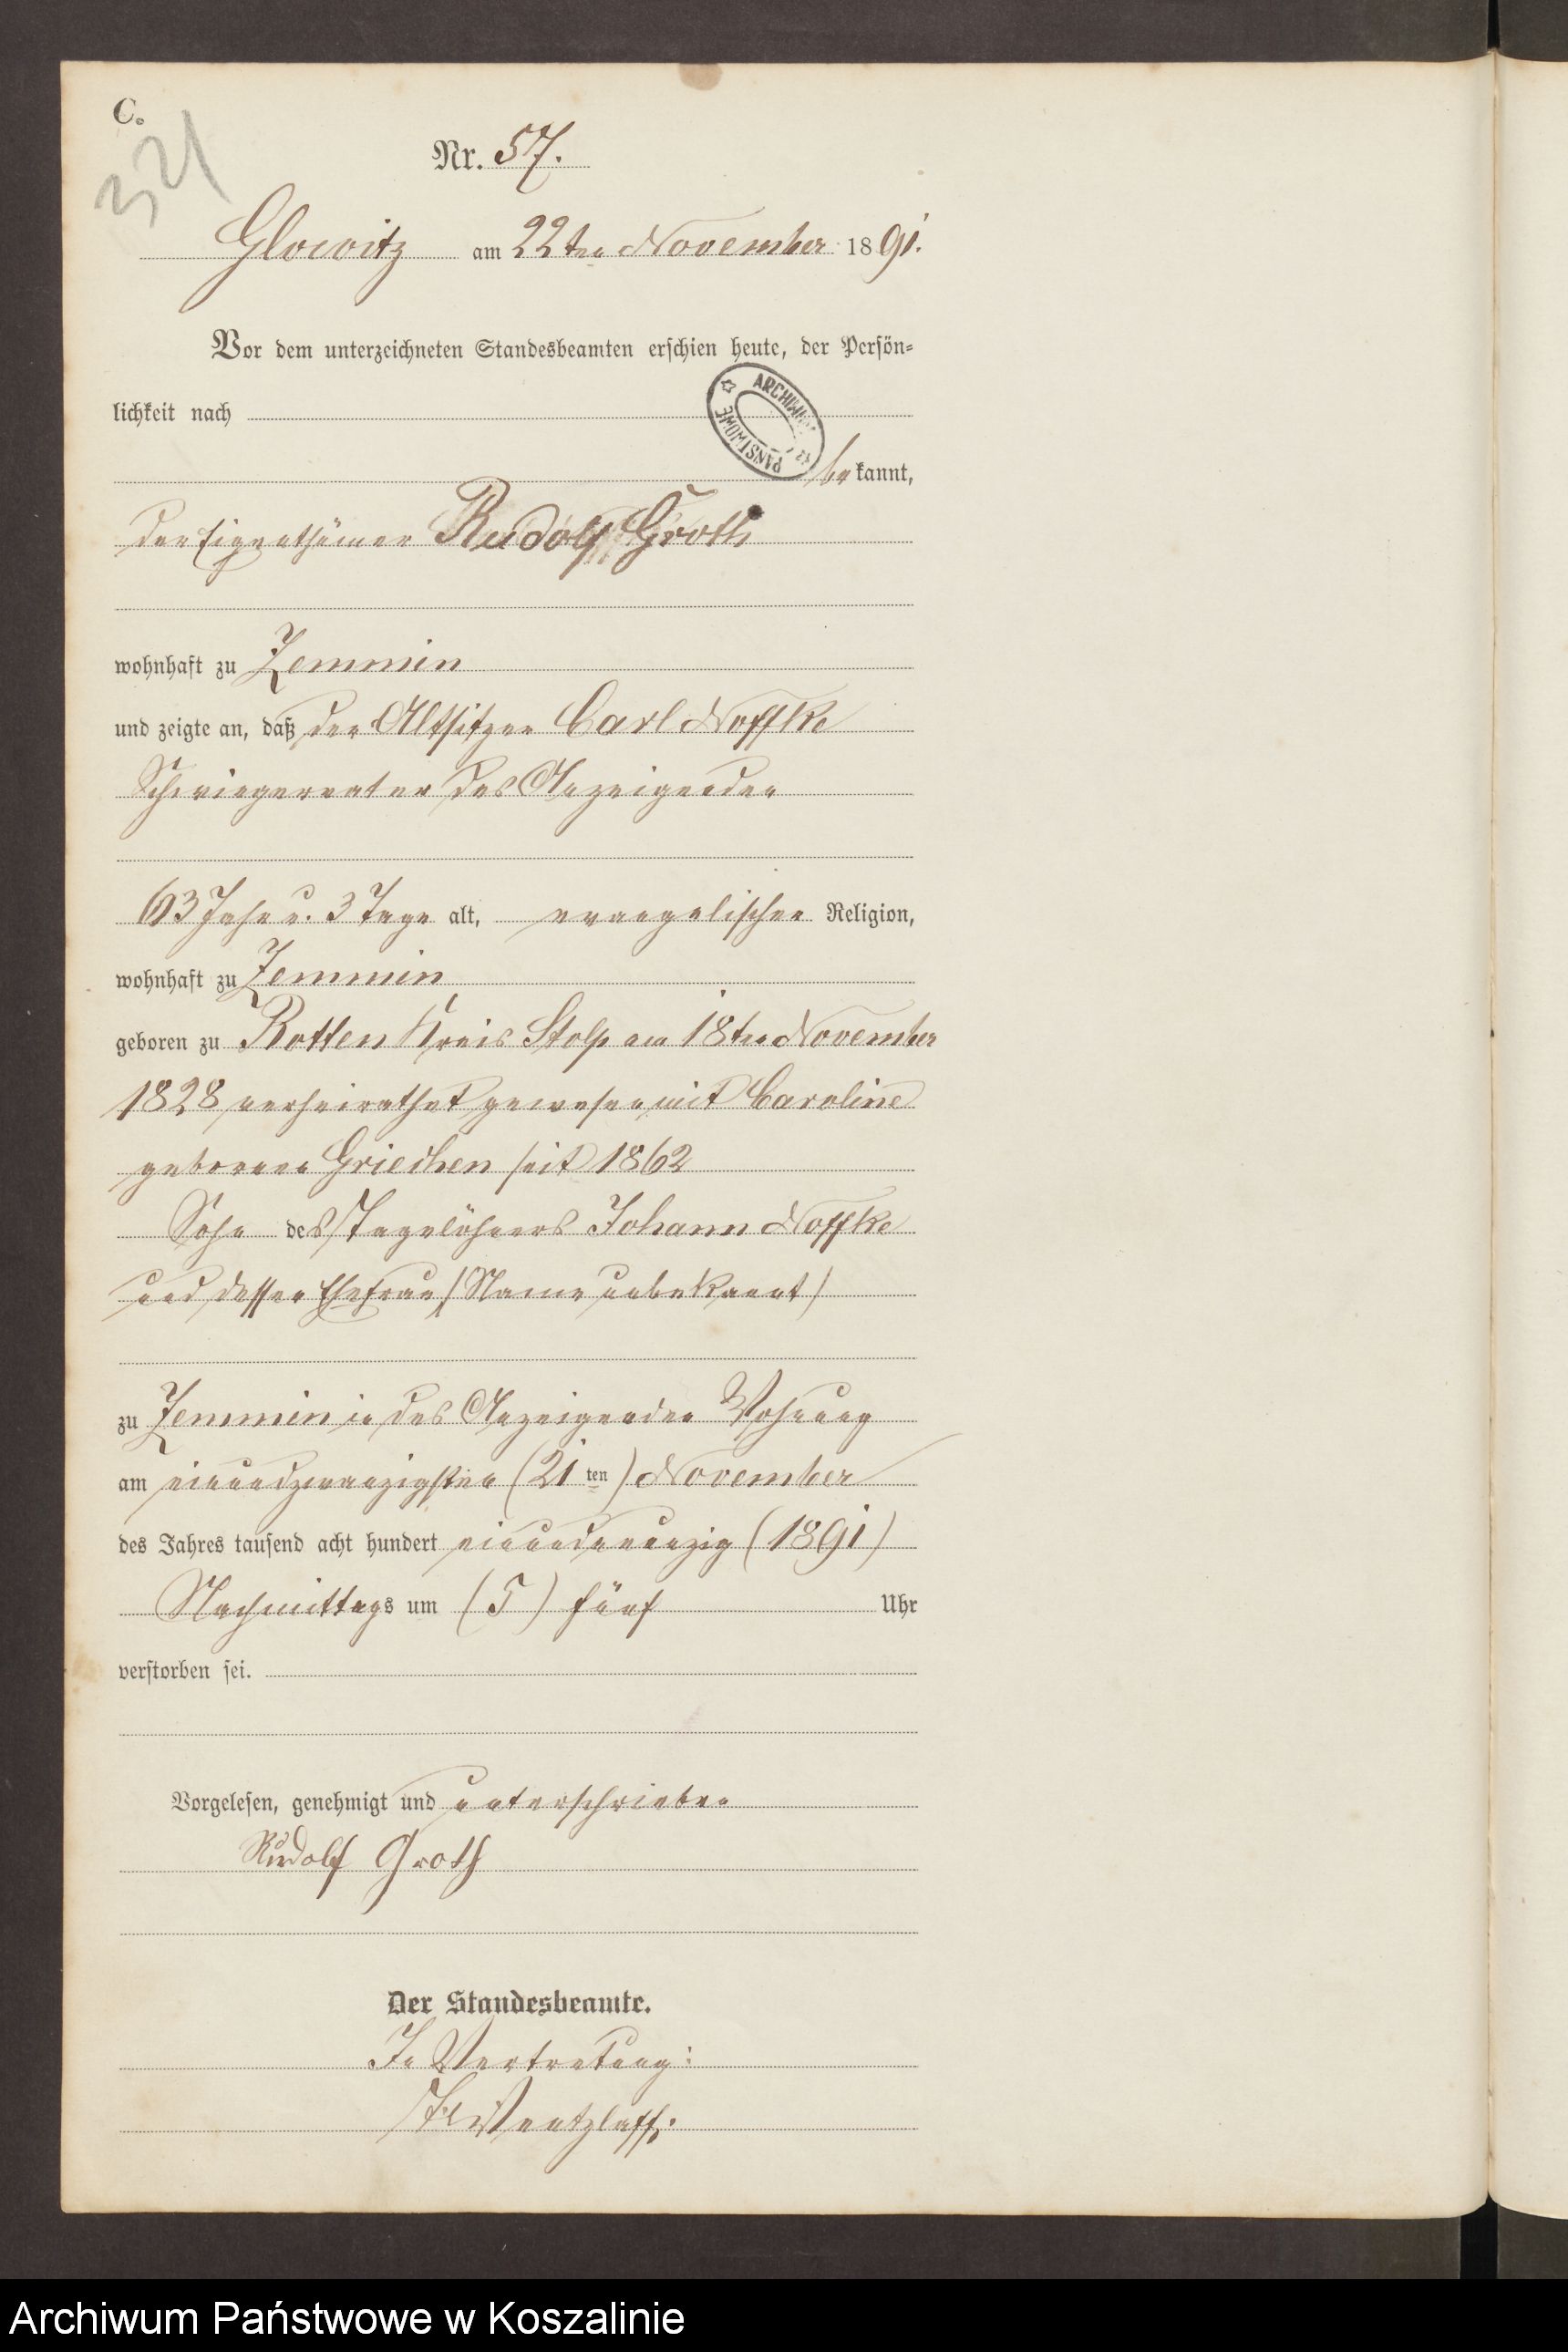 C.
321
Nr. 57.
Glowitz am 22ten November 1891.
Vor dem unterzeichneten Standesbeamten erschien heute, der Persön-
lichkeit nach
ARCHIWUM PAŃSTWOWE
bekannt,
der Eigenthümer Rudolf Groth
wohnhaft zu Zemmin
und zeigte an, daß der Altsitzer Carl Noffke
Schwiegervater des Anzeigenden
63 Jahr u. 3 Tage alt, evangelischer Religion,
wohnhaft zu Zemmin
geboren zu Rotten Kreis Stolp am 18ten November
1828 verheirathet gewesen mit Caroline
geborene Griechen seit 1862
Sohn des Tagelöhners Johann Noffke
und dessen Ehefrau (Name unbekannt)
zu Zemmin in des Anzeigenden Wohnung
am einundzwanzigsten (21ten) November
des Jahres tausend acht hundert einundneunzig (1891)
Nachmittags um (5) fünf Uhr
verstorben sei.
Vorgelesen, genehmigt und unterschrieben
Rudolf Groth
Der Standesbeamte.
In Vertretung:
Wentzlaff.
Archiwum Państwowe w Koszalinie